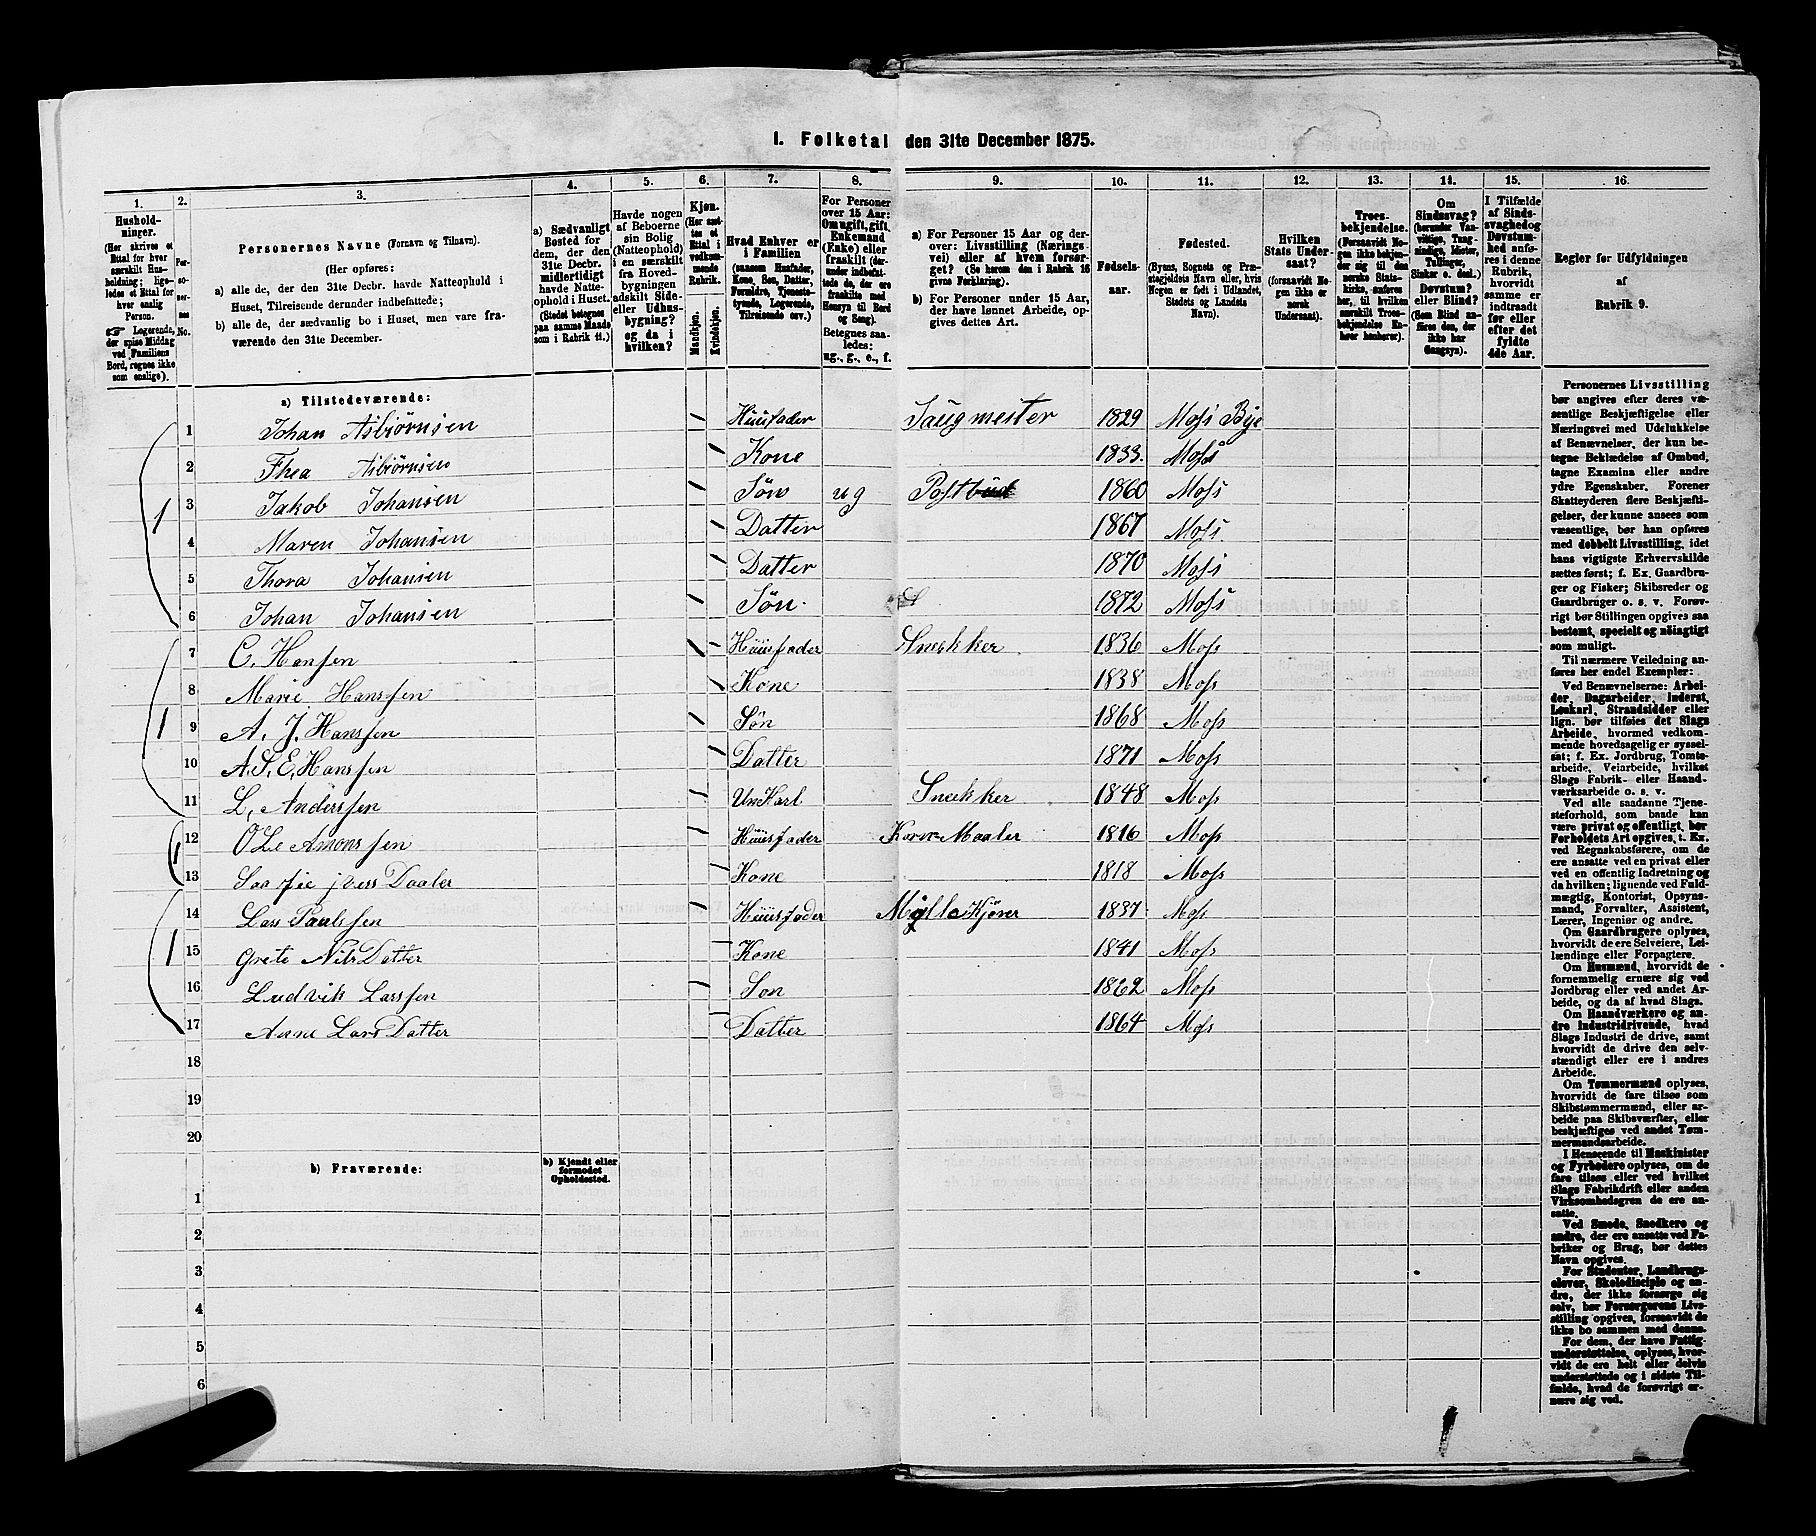 I. Folketal den 31te December 1875.
1. 2. 3. 4. 5. 6. 7. 8. 9. 10. 11. 12. 13. 14. 15. 16.
Husholdninger. (Her skrives et Ettal for hver særskilt Husholdning; ligeledes et Ettal for hver enslig Person. Logerende, der spise Middag ved Familiens Bord, regnes ikke som enslige).
Personernes No.
Personernes Navne (Fornavn og Tilnavn).
(Her opføres:
a) alle de, der den 31te Decbr. havde Natteophold i Huset, Tilreisende derunder indbefattede;
b) alle de, der sædvanlig bo i Huset, men vare fraværende den 31te December.
a) Sædvanligt Bosted for dem, der den 31te Decbr. midlertidigt havde Natteophold i Huset. (Stedet betegnes paa samme Maade som i Rubrik 11.)
Havde nogen af Beboerne sin Bolig (Natteophold) i en særskilt fra Hovedbygningen adskilt Side- eller Udhusbygning? og da i hvilken?
Kjøn. (Her sættes et Ettal i vedkommende Rubrik.
Mandkjøn. Kvindekjøn.
Hvad Enhver er i Familien (saasom Husfader, Kone, Søn, Datter, Forældre, Tjenestetyende, Logerende, Tilreisende osv.)
For Personer over 15 Aar: Om ugift, gift, Enkemand (Enke) eller fraskilt (derunder indbefattede de, der ere fraskilte med Hensyn til Bord og Seng). Betegnes saaledes: ug., g., e., f.
a) For Personer 15 Aar og derover: Livsstilling (Næringsvei) eller af hvem forsørget? (Se herom den i Rubrik 16 givne Forklaring).
b) For Personer under 15 Aar, der have lønnet Arbeide, opgives dettes Art.
Fødselsaar.
Fødested. (Byens, Sognets og Præstegjeldets Navn eller, hvis Nogen er født i Udlandet, Stedets og Landets Navn).
Hvilken Stats Undersaat? (forsaavidt Nogen ikke er norsk Undersaat).
Troesbekjendelse. (Forsaavidt Nogen ikke bekjender sig til den norske Statskirke, anføres her, til hvilken særskilt Troesbekjendelse Enhver henhører).
Om Sindssvag? (herunder Vanvittige, Tungsindige, Idioter, Tullinger, Sinker o. desl.) Døvstum? eller Blind? (Som Blind anføres den, der ikke har Gangsyn).
I Tilfælde af Sindssvaghed og Døvstumhed anføres i denne Rubrik, hvorvidt samme er indtraadt før eller efter det fyldte 4de Aar.
Regler for Udfyldningen af Rubrik 9.
a) Tilstedeværende:
1 Johan Asbjørnsen Huusfader Saugmester 1829 Moss Bye
2 Thea Asbjørnsen Kone 1833. Moss
1 3 Jakob Johansen Søn ug Postbud 1860 Moss
4 Maren Johansen Datter 1867 Moss
5 Thora Johansen Datter 1870 Moss
6 Johan Johansen Søn. 1872 Moss
7 C. Hansen Huusfader Snekker 1836 Moss
8 Marie Hanssen Kone 1838 Moss
1 9 A. J. Hanssen Søn 1868 Moss
10 A. S. E. Hanssen Datter 1871 Moss
11 L. Anderssen UnKarl Snekker 1848 Moss
1 12 Ole Amonssen Huusfader Korn-Maaler 1816 Moss
13 Kone 1818 Moss
14 Lars Paulssen Huusfader 1837 Moss
1 15 Grete Nils Datter Kone 1841 Moss
16 Ludvik Larssen Søn 1862 Moss
17 Anne Lars Datter Datter 1864 Moss
18
19
20
b) Fraværende: b) Kjendt eller formodet Opholdssted.
1
2
3
4
5
6
Personernes Livsstilling
bør angives efter deres væ-
sentlige Beskjæftigelse eller
Næringsvei med Udelukkelse
af Benævnelser, der kun be-
tegne Beklædelse af Ombud,
tagne Examina eller andre
ydre Egenskaber. Forener
Skatteyderen flere Beskjæfti-
gelser, der kunne ansees som
væsentlige, bør han opføres
med dobbelt Livsstilling, idet
hans vigtigste Erhvervskilde
sættes først; f. Ex. Gaardbru-
ger og Fisker; Skibsreder og
Gaardbruger o. s. v. Forøv-
rigt bør Stillingen opgives saa
bestemt, specielt og nøiagtigt
som muligt.
Til nærmere Veiledning an-
føres her endel Exempler:
Ved Benævnelserne: Arbei-
der, Dagarbeider, Inderst,
Løskarl, Strandsidder eller
lign. bør tilføies det Slags
Arbeide, hvormed vedkom-
mende hovedsagelig er syssel-
sat; f. Ex. Jordbrug, Tomte-
arbeide, Veiarbeide, hvilket
Slags Fabrik- eller Haand-
værksarbeide o. s. v.
Ved alle saadanne Tjene-
steforhold, som baade kan
være privat og offentligt, bør
Forholdets Art opgives, t. Ex.
ved Regnskabsførere, om de
ere ansatte ved en privat eller
ved en offentlig Indretning og
da hvilken; lignende ved Fuld-
mægtig, Kontorist, Opsyns-
mand, Forvalter, Assistent,
Lærer, Ingeniør og andre.
Om Gaardbrugere oplyses,
hvorvidt de ere Selveiere, Lei-
lændinge eller Forpagtere.
Om Husmænd, hvorvidt de
fornemmelig ernære sig ved
Jordbrug eller ved andet Ar-
beide, og da af hvad Slags.
Om Haandværkere og an-
dre Industridrivende, hvad
Slags Industri de drive, samt
hvorvidt de drive den selv-
stændigt eller ere i andres
Arbeide.
Om Tømmermænd oplyses,
hvorvidt de fare tilsøs som
Skibstømmermænd, eller ar-
beide paa Skibsværfter, eller
beskjæftiges ved andet Tøm-
mermandsarbeide.
I Henseende til Maskinister
og Fyrbødere oplyses, om de
fare tilsøs eller ved hvilket
Slags Fabrikdrift eller anden
Virksomhedsgren de ere an-
satte.
Ved Smede, Snedkere og
andre, der ere ansatte ved Fa-
briker og Brug, bør dettes
Navn opgives.
For Studenter, Landbrugs-
elever, Skoledisciple og an-
dre, der ikke forsørge sig
selv, bør Forsørgerens Livs-
stilling opgives, forsaavidt de
ikke bo sammen med denne.
For dem, der have Fattig-
understøttelse, oplyses, hvor-
vidt de ere helt eller delvis
understøttede og i sidste Til-
fælde, hvad de forøvrigt er-
nære sig ved.